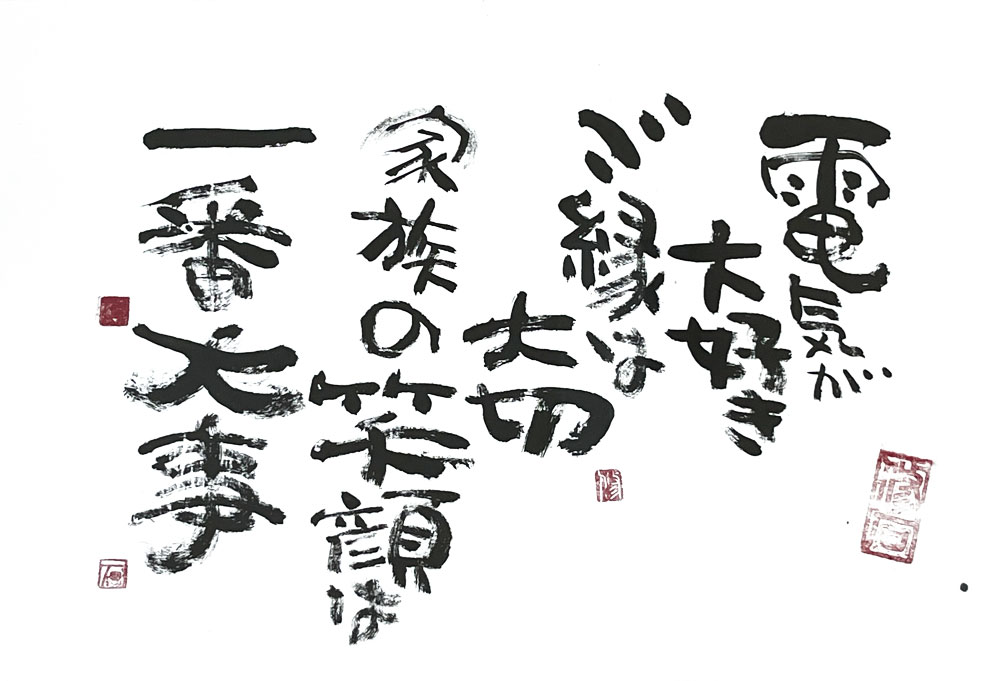 電気が
大好き
ご縁は
大切
家族の笑顔は
一番大事